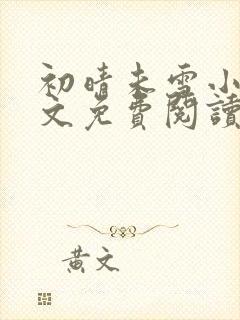 初晴未雪小
文免費閱讀
黃文